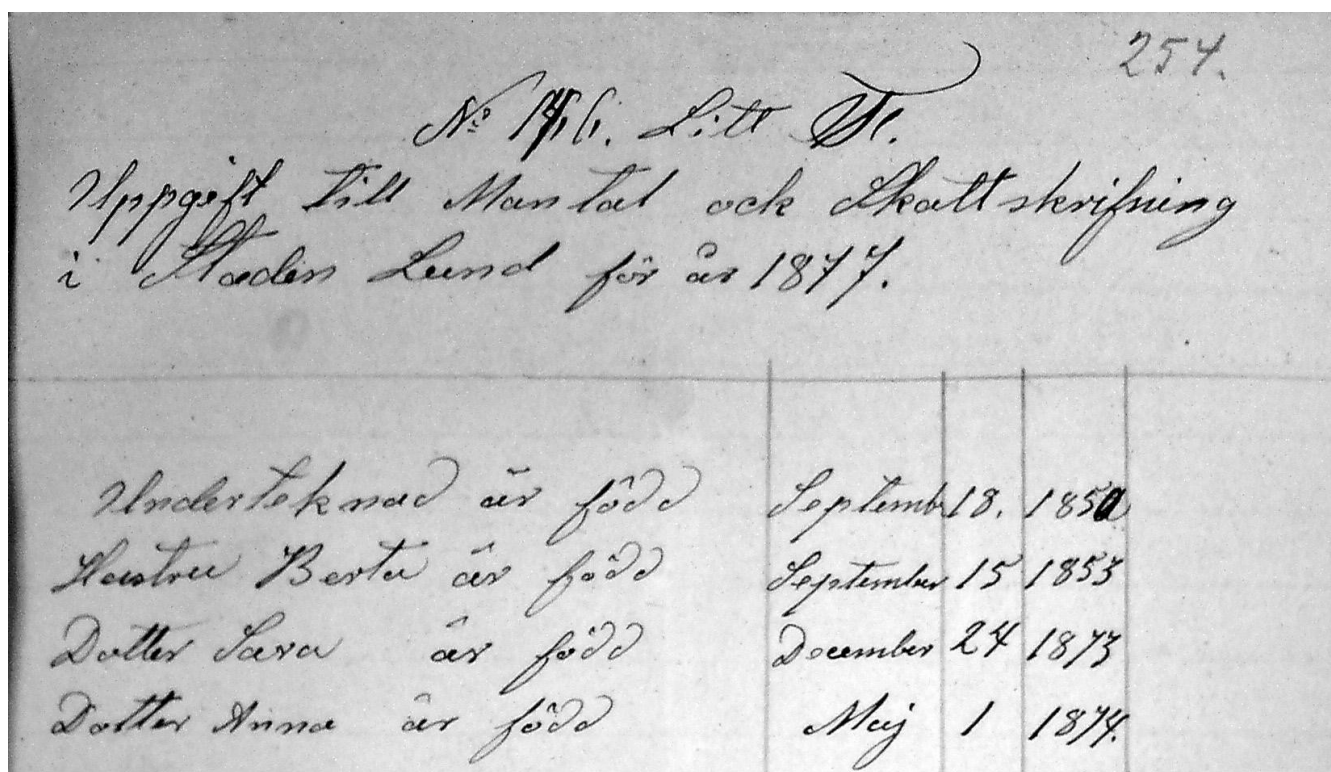 254.
No Litt
Uppgift till Mantal ock Skattskrifning
i Staden Lund för år 1877.
Underteknad är född Septemb 18. 1850
Hustru Berta är född September 15 1853
Dotter Sara är född December 24 1873
Dotter Anna är född Maj 1 1874.